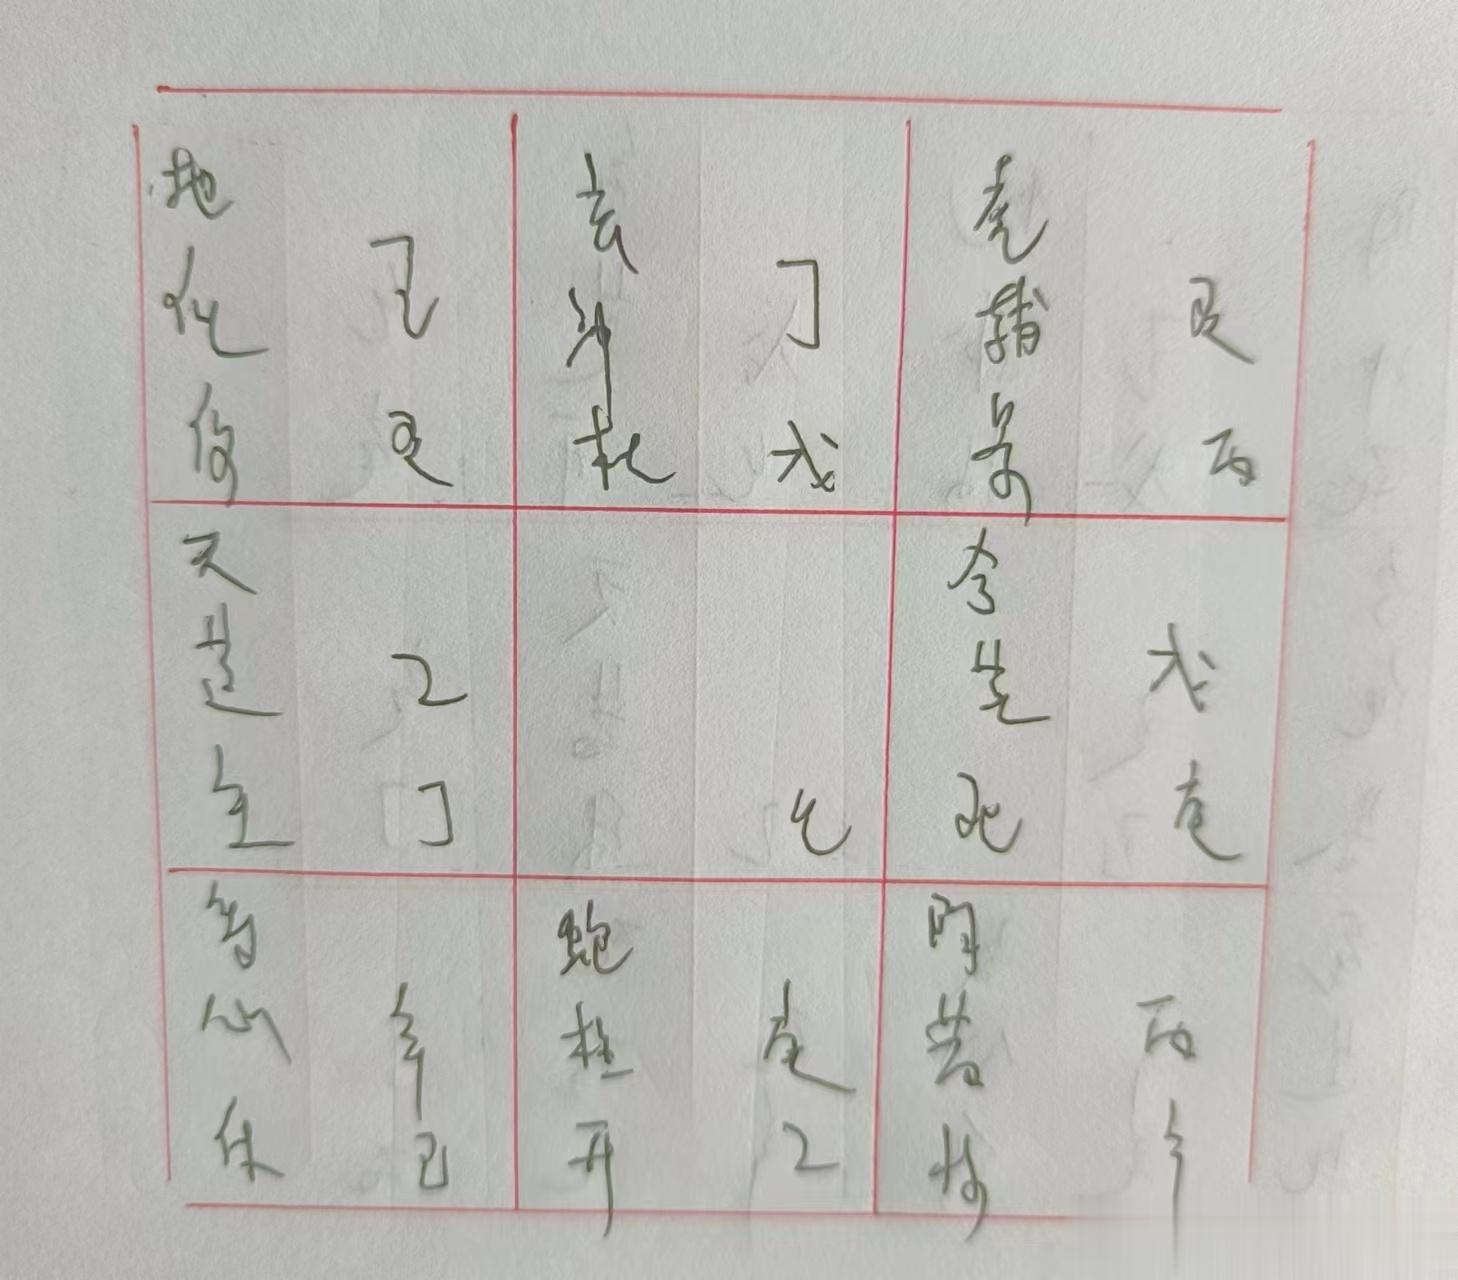 地 任 伤
己 癸
玄 冲 杜
丁 戊
虎 辅 景
癸 丙
天 蓬 生
乙 丁
壬
合 英 死
戊 庚
符 心 休
辛 己
蛇 柱 开
庚 乙
阴 芮 惊
丙 辛